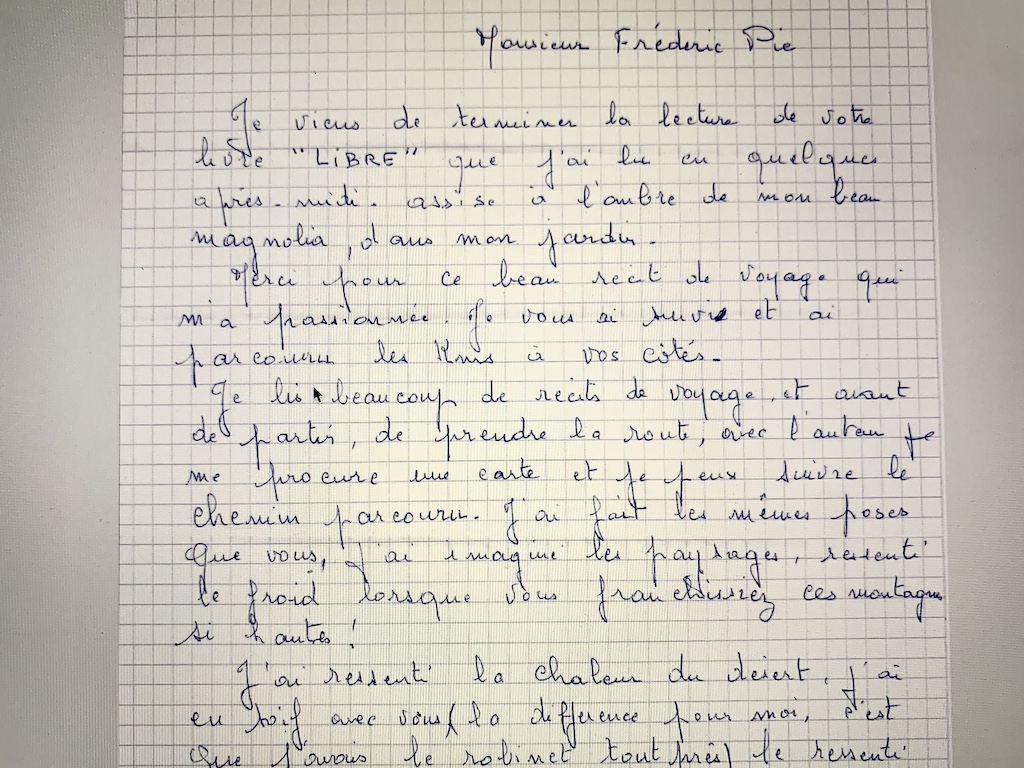 Monsieur Fréderic Pie
Je viens de terminer la lecture de votre
livre "LiBRE" que j'ai lu en quelques
après-midi. assise à l'ombre de mon beau
magnolia, dans mon jardin.
Merci pour ce beau récit de voyage qui
m'a passionnée. Je vous ai suivi et ai
parcouru les Kms à vos côtés.
Je lis beaucoup de récits de voyage, et avant
de partir, de prendre la route, avec l'auteur je
me procure une carte et je peux suivre le
chemin parcouru. J'ai fait les mêmes poses
que vous, j'ai imaginé les paysages, ressenti
le froid lorsque vous franchissiez ces montagnes
si hautes !
J'ai ressenti la chaleur du désert, j'ai
eu soif avec vous (la différence pour moi, c'est
que j'avais le robinet tout près) le ressenti